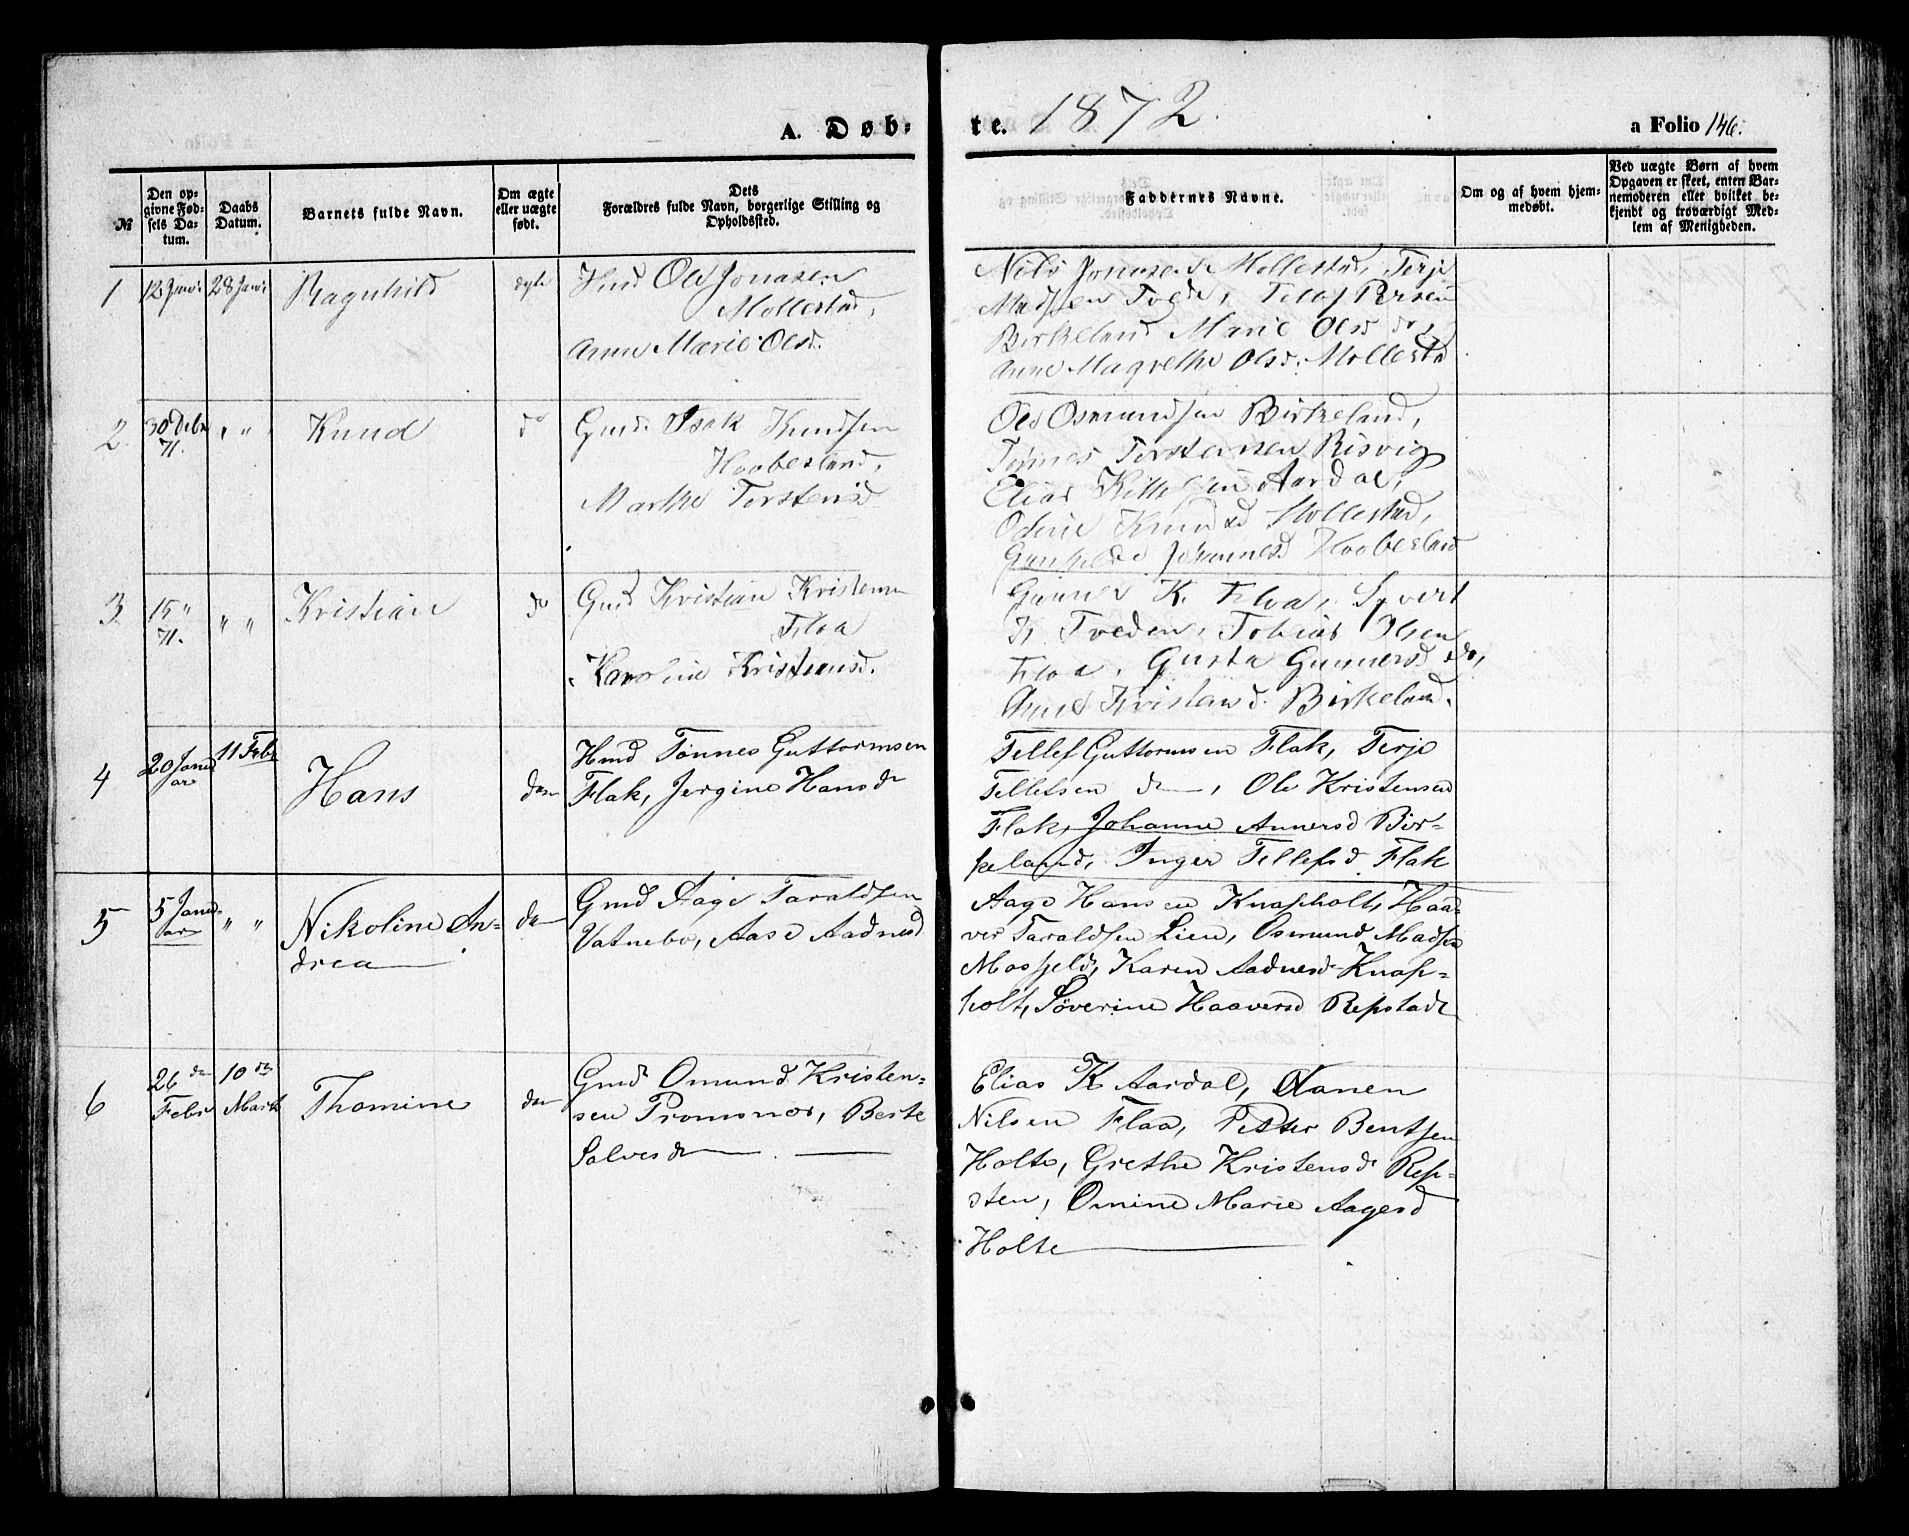 A. Døb-
te. 1872.
a Folio 146.
№
Den op-
givne Fød-
sels Da-
tum.
Daabs
Datum.
Barnets fulde Navn.
Om ægte
eller uægte
født.
Dets
Forældres fulde Navn, borgerlige Stilling og
Opholdssted.
Faddernes Navne.
Om og af hvem hjem-
medøbt.
Ved uægte Børn af hvem
Opgaven er skeet, enten Bar-
nemoderen eller hvilket be-
kjendt og troværdigt Med-
lem af Menigheden.
1
12 Janr
28 Janr
Ragnhild
ægte
Hmd Ole Jonasen
Mollestad,
Anne Marie Olsd.
Nils Jonasen Mollestad, Terje
Madssen Tvede, Tellef Persen
Birkeland Marie Olsd do,
Anne Magrethe Olsd. Mollestad
2.
30 Debr
71.
" "
Knud
do
Gmd. Isak Knudsen
Hoobesland,
Marthe Torstensd
Ole Osmundsen Birkeland,
Tønnes Torstensen Risvig
Elias Kittelsen Aardal,
Oderie Knudsd Mollestad,
Gunhilde Johannesd Hoobesland
3.
15 "
71.
" "
Kristian
do
Gmd Kristian Kristensen
Floa
Karoline Kristiansd.
Gunner K. Floa, Syvert
K. Tveden, Tobias Olsen
Floa, Gusta Gunnersd do,
Anne Kristensd. Birkeland.
4
20 Janu
ar
11 Febr
Hans
do
Hmd Tønnes Guttormsen
Flak, Jørgine Hansd
Tellef Guttormsen Flak, Terje
Tellefsen do, Ole Kristensen
Flak, Johanne Annersd Bir-
keland, Inger Tellefsd Flak
5
5 Janu-
ar
" "
Nikoline An-
drea
do
Gmd Aage Taraldsen
Vatnebo, Aase Aadnesd
Aage Hansen Knapholt, Haa-
ver Taraldsen Lien, Osmund Madsen
Mosfjeld, Karen Aadnesd Knap-
holt, Söverine Haaversd Repstad
6
26 de
Febr
10 de
Marts
Thomine
do
Gmd Omund Kristen-
sen Promsnes, Berte
Salvesd
Elias K Aardal, Aanen
Nilsen Flaa, Petter Bentsen
Holte, Grethe Kristensd Rep-
sten, Omine Marie Aagesd
Holte